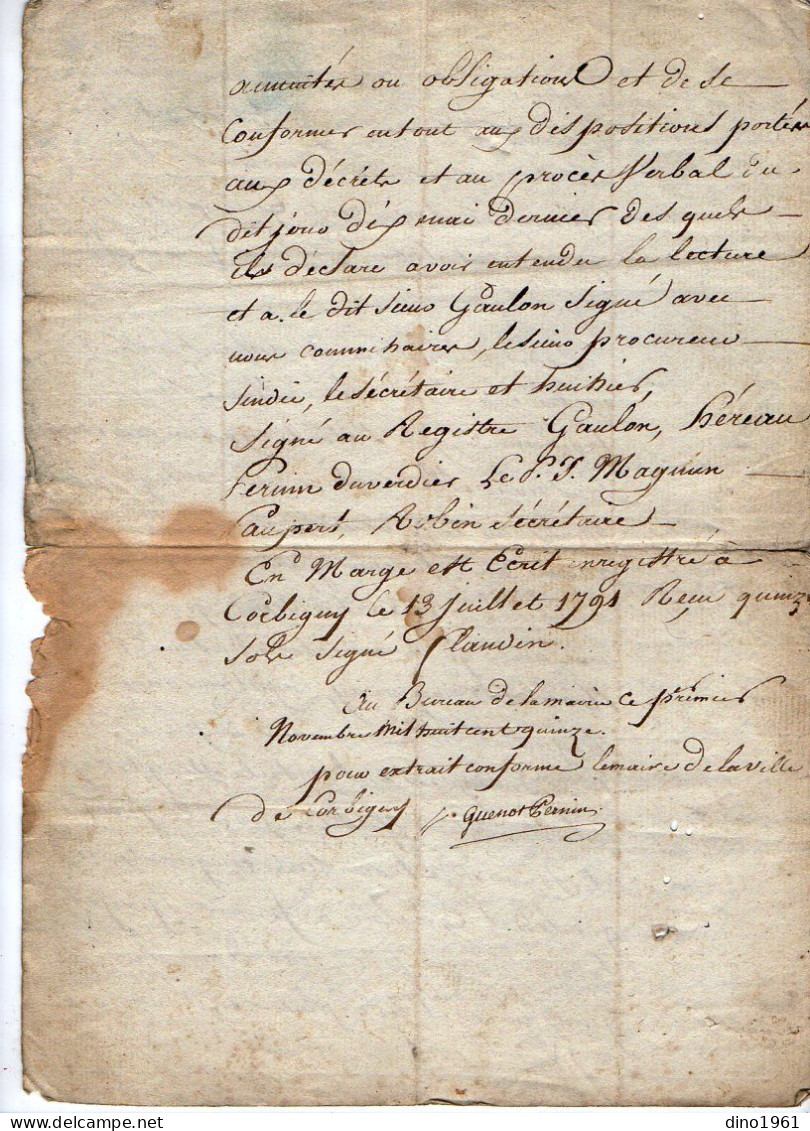 annuités ou obligations et de se
Conformer en tout aux dispositions portées
aux décrets et au procès Verbal du
dit jour dix mai dernier des quels
ils déclare avoir entendu la lecture
et a le dit sieur Gaulon signé avec
nous commihaires, le sieur procureur
sindic, le sécrétaire et huihier,
signé au Registre Gaulon, héreau
Perrin duverdier Le P. J. Magnien
Paupert, Robin sécrétaire
En Marge est Ecrit enregistré a
Corbigny le 13 juillet 1791 Reçu quinze
sols signé flandin.
Au Bureau de la mairie ce premier
Novembre mil huit cent quinze.
pour extrait conforme le maire de la ville
de Corbigny Guenot Perrin
dino1961